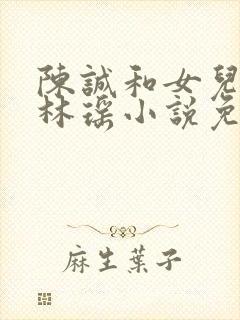 陳誠和女兒
林瑤小說免
麻生葉子